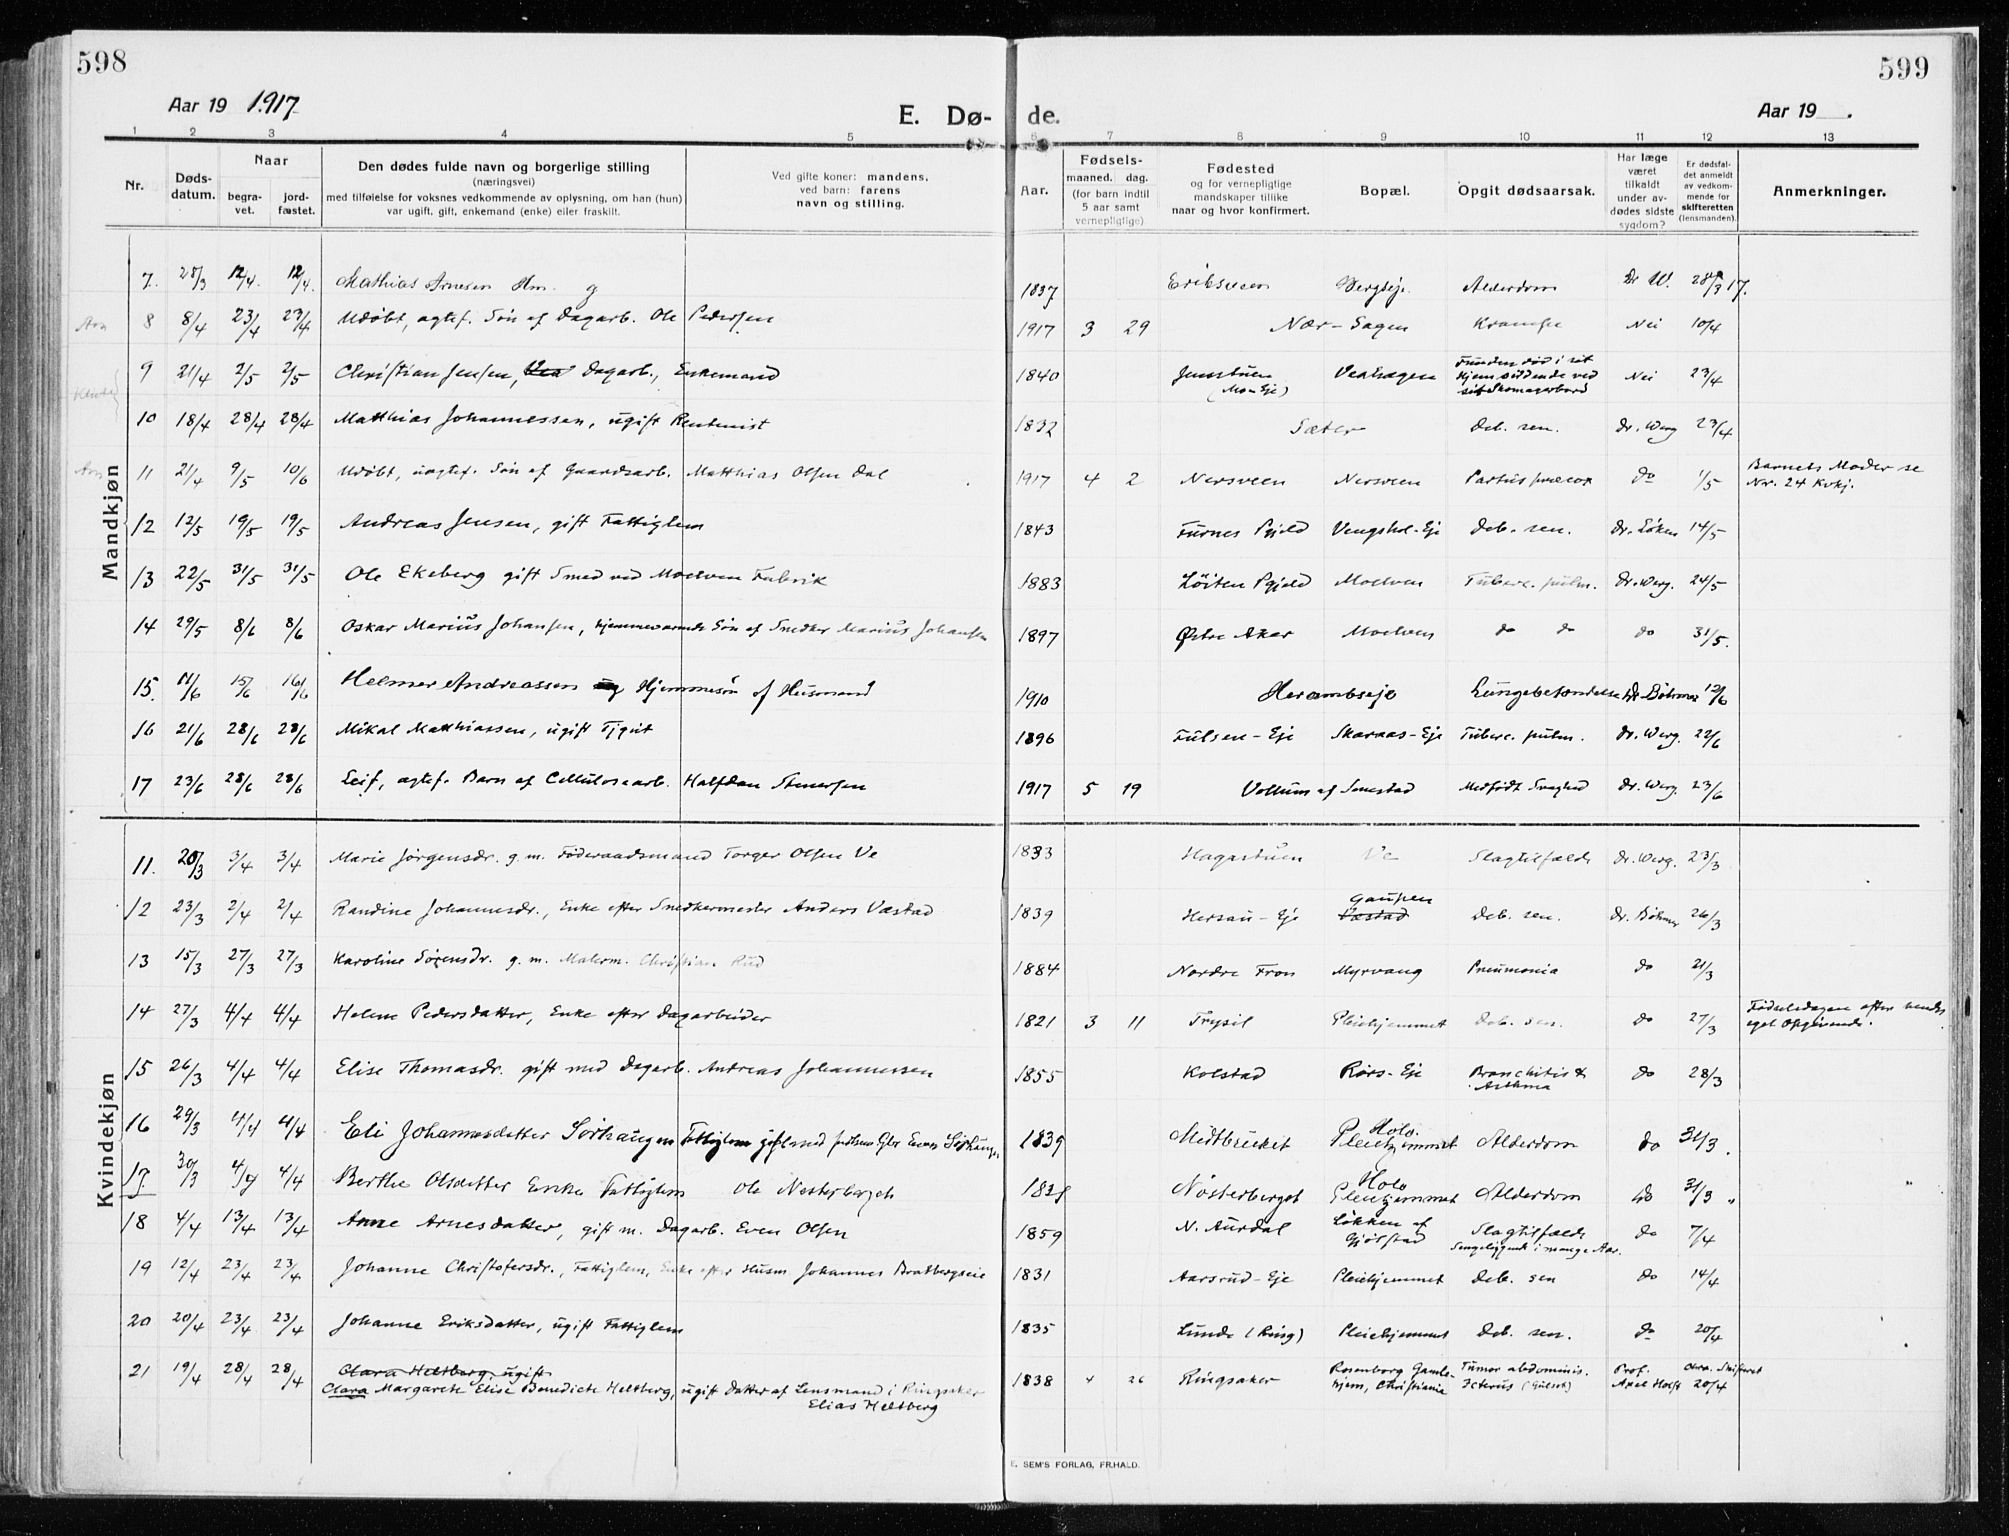 598
599
Aar 19 1917
E. Dø- de.
Aar 19 .
1 2 3 4 5 6 7 8 9 10 11 12 13
Nr.
Døds-
datum.
Naar
begra-
vet.
jord-
fæstet.
Den dødes fulde navn og borgerlige stilling
(næringsvei)
med tilføielse for voksnes vedkommende av oplysning, om han (hun)
var ugift, gift, enkemand (enke) eller fraskilt.
Ved gifte koner: mandens,
ved barn: farens
navn og stilling.
Aar.
Fødsels-
maaned. dag.
(for barn indtil
5 aar samt
vernepligtige)
Fødested
og for vernepligtige
mandskaper tillike
naar og hvor konfirmert.
Bopæl.
Opgit dødsaarsak.
Har læge
været
tilkaldt
under av-
dødes sidste
sygdom?
Er dødsfal-
det anmeldt
av vedkom-
mende for
skifteretten
(lensmanden).
Anmerkninger.
Mandkjøn
7. 28/3 12/4. 12/4. Mathias Arnesen Hm. g 1837 Eriksveen Bergseje. Alderdom Dr W. 28/3 17.
8 8/4 23/4 23/4 Udøbt, agtef. Søn af Dagarb. Ole Pedersen 1917 3 29 Nær-Sagen Krampe Nei 10/4
9 21/4 2/5 2/5 Christian Jensen, Dagarb., Enkemand 1840 Jemstuen (Mo-Eje) Veahagen Funden død i sit
Hjem siddende ved
sit Skomagerbord Nei 23/4
10 18/4 28/4 28/4 Matthias Johannessen, ugift Rentenist 1832 Sæter Deb. sen. dr. Werg 23/4
11 21/4 9/5 10/6 Udøbt, uagtef. Søn af Gaardsarb. Matthias Olsen Dal 1917 4 2 Nersveen Nersveen Partus præcox do 1/5 Barnets Moder se
Nr. 24 Kvkj.
12 12/5 19/5 19/5 Andreas Jensen, gift Fattiglem 1843 Furnes Pgjeld Vengshol-Eje Deb. sen. dr. Løken 14/5
13 22/5 31/5 31/5 Ole Ekeberg gift Smed ved Moelven Fabrik 1883 Løiten Pgjeld Moelven Tuberc. pulm. dr. Werg. 24/5
14 29/5 8/6 8/6 Oskar Marius Johansen, hjemmeværende Søn af Snedker Marius Johansen 1897 Østre Aker Moelven do do do 31/5.
15. 11/6 15/6 16/6 Helmer Andreassen ug Hjemmesøn af Husmand 1910 Herambseje Lungebetændelse Dr Bøhmer 12/6
16 21/6 28/6 28/6 Mikal Matthiassen, ugift Tjgut 1896 Fulsen-Eje Skaraas-Eje Tuberc. pulm. dr. Werg. 22/6
17 23/6 28/6 28/6 Leif, agtef. Barn af Cellulosearb. Halfdan Stenersen 1917 5 19 Vollum af Smestad Medfødt Svaghed dr. Werg. 23/6
Kvindekjøn
11. 20/3 3/4 3/4 Marie Jørgensdr. g. m. Føderaadsmand Torger Olsen Ve 1833 Hagastuen Ve Slagtilfælde dr. Werg. 23/3
12 23/3 2/4 2/4 Randine Johannesdr., Enke efter Snedkermester Anders Væstad 1839 Hersau-Eje Gaupen
Væstad Deb. sen. dr. Bøhmer 26/3
13 15/3 27/3 27/3 Karoline Sørensdr. g. m. Malerm. Christian Rud 1884 Nordre Fron Myrvang Pneumonia do 21/3
14 27/3 4/4 4/4 Helene Pedersdatter, Enke efter Dagarbeider 1821 3 11 Trysil Pleiehjemmet Deb. sen. do 27/3 Fødselsdagen efter hendes
eget Opgivende.
15 26/3 4/4 4/4 Elise Thomasdr. gift med Dagarb. Andreas Johannessen 1855 Kolstad Rørs-Eje Bronchitis &
Asthma do 28/3
16 29/3 4/4 4/4 Eli Johannesdatter Sørhaugen Fattiglem gift med Even Sørhaugen 1839 Midtbruket Holo
Pleiehjemmet Alderdom do 31/3.
17 30/3 4/4 4/4 Berthe Olsdatter Enke Fattiglem Ole Nøsterberget Nøsterberget Holo
Pleiehjemmet Alderdom do 31/3 "
18 4/4 13/4 13/4 Anne Arnesdatter, gift m. Dagarb. Even Olsen 1859 N. Aurdal Løkken af
Gjølstad Slagtilfælde
Sengeliggende i mange Aar. do 7/4
19 12/4 23/4 23/4 Johanne Christofersdr., Fattiglem, Enke efter Husm Johannes Bratbergseie 1831 Aarsrud-Eje Pleiehjemmet Deb. sen do 14/4
20 20/4 23/4 23/4 Johanne Eriksdatter, ugift Fattiglem 1835 Lunde (Ring) Pleiehjemmet Deb. sen. do 20/4
21 19/4 28/4 28/4 Clara Heltberg, ugift
Clara Margarete Elise Benedicte Heltberg, ugift Datter af Lensmand i Ringsaker
Elias Heltberg 1838 4 26 Ringsaker Rosenborg Gamle-
hjem, Christiania Tumor abdominis.
Icterus (Gulsot) Prof.
Axel Holst Chra. Skifteret
20/4
E. SEM'S FORLAG, FR.HALD.